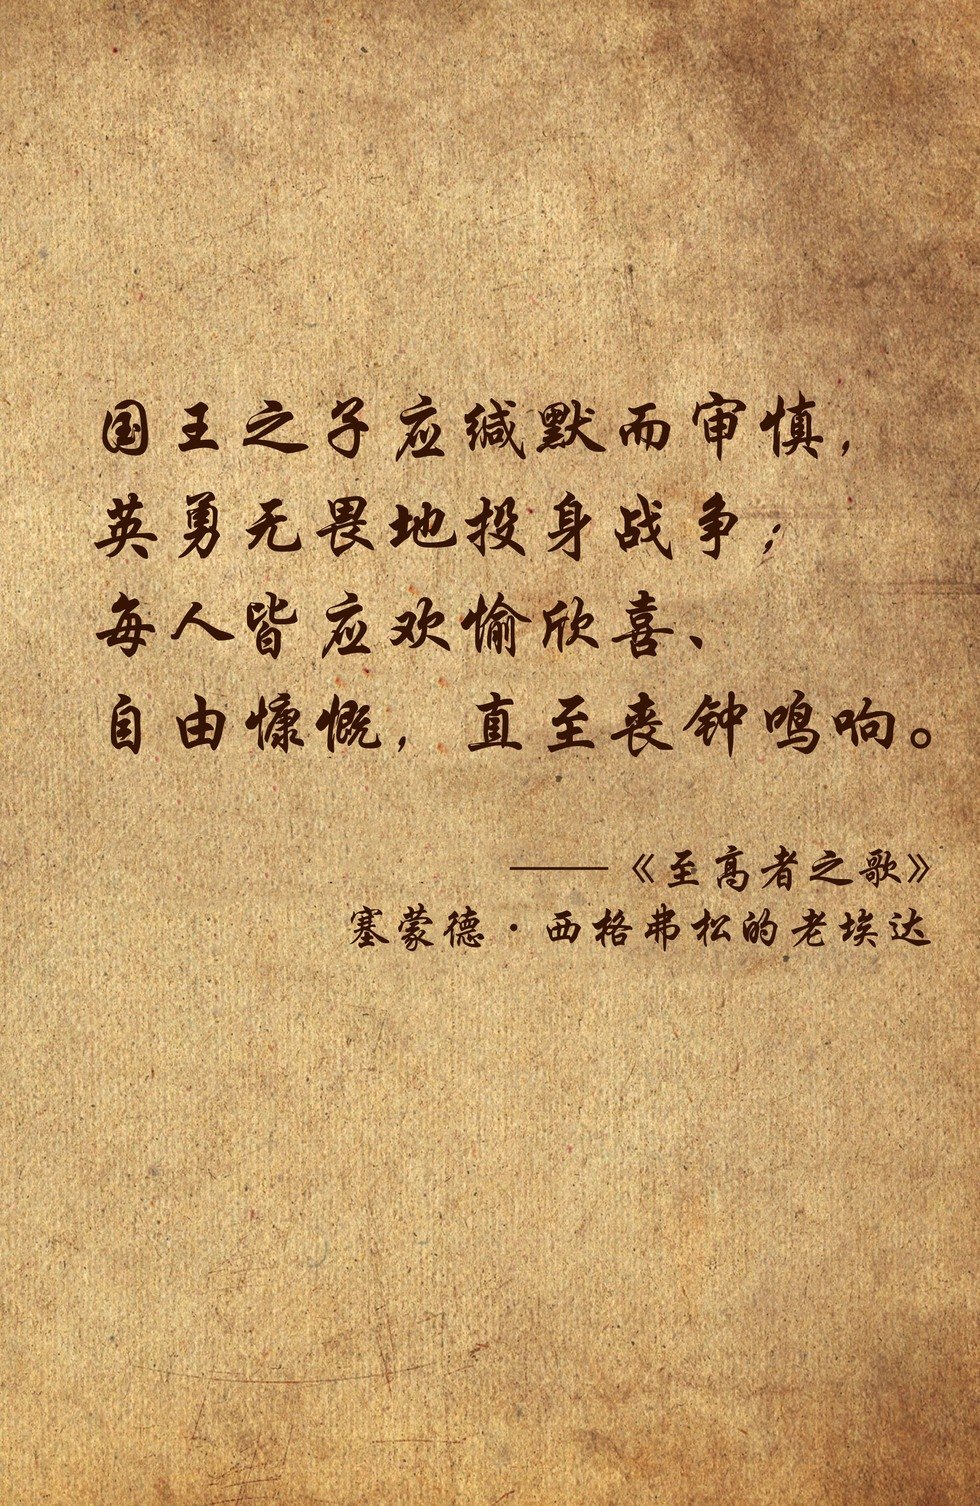 国王之子应缄默而审慎，
英勇无畏地投身战争；
每人皆应欢愉欣喜、
自由慷慨，直至丧钟鸣响。
——《至高者之歌》
塞蒙德·西格弗松的老埃达